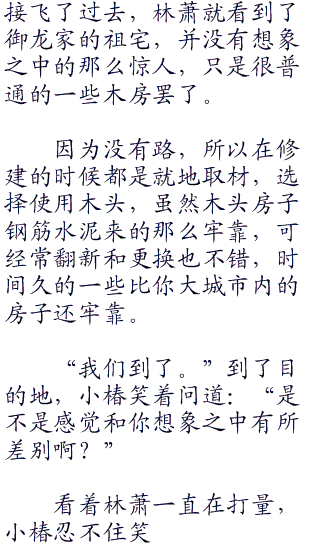 接飞了过去，林萧就看到了
御龙家的祖宅，并没有想象
之中的那么惊人，只是很普
通的一些木房罢了。
因为没有路，所以在修
建的时候都是就地取材，选
择使用木头，虽然木头房子
钢筋水泥来的那么牢靠，可
经常翻新和更换也不错，时
间久的一些比你大城市内的
房子还牢靠。
“我们到了。”到了目
的地，小椿笑着问道：“是
不是感觉和你想象之中有所
差别啊？”
看着林萧一直在打量，
小椿忍不住笑